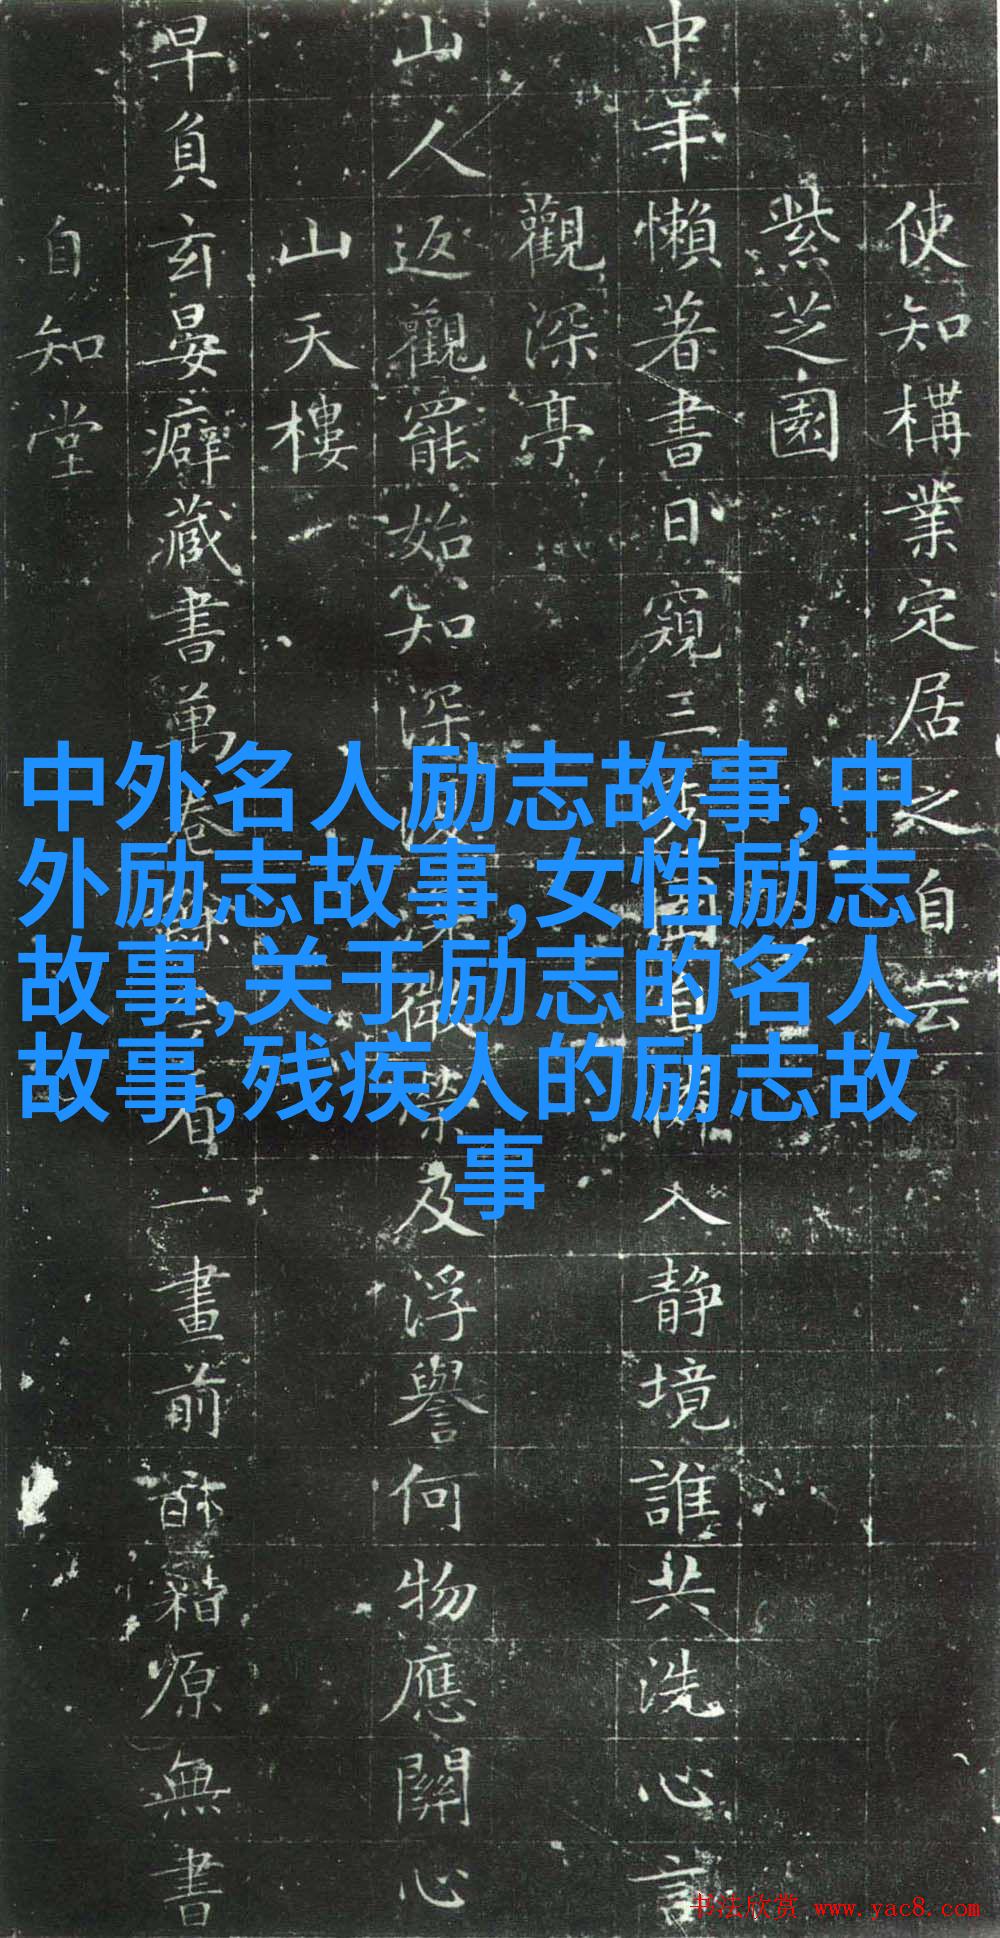 使知構業定居之自云
紫芝園
中年懶著書日窺三入靜境誰共洗心言
觀深亭
山人返觀罷始知深微及浮譽何物應關心
山天樓
早負玄晏癖藏書萬卷看一畫前籍原無書
自知堂
中外名人励志故事,中
外励志故事,女性励志
故事,关于励志的名人
故事,残疾人的励志故
事
书法欣赏 www.yac8.com